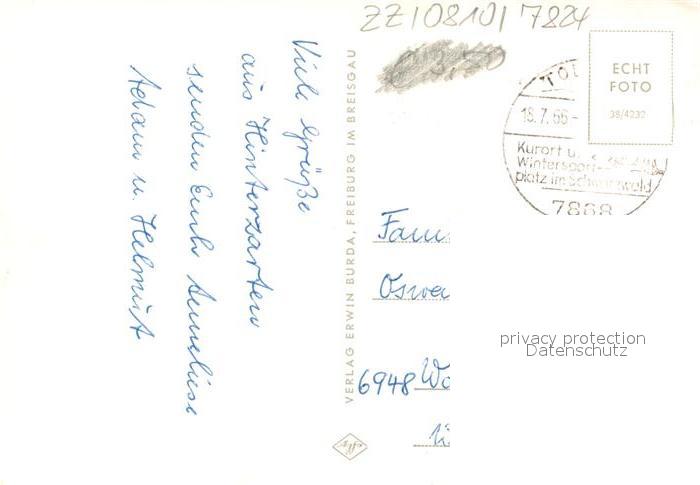 Viele Grüße
aus Hinterzarten
senden Euch Anneliese
Adam u. Helmut
VERLAG ERWIN BURDA, FREIBURG IM BREISGAU
ZZ|0810|7824
€3,50
ECHT
FOTO
38/4232
TOD
18.7.66-
Kurort u.
Wintersport-
platz im Schwarzwald
7868
Fam
Oswa
6948 Wa
privacy protection
Datenschutz